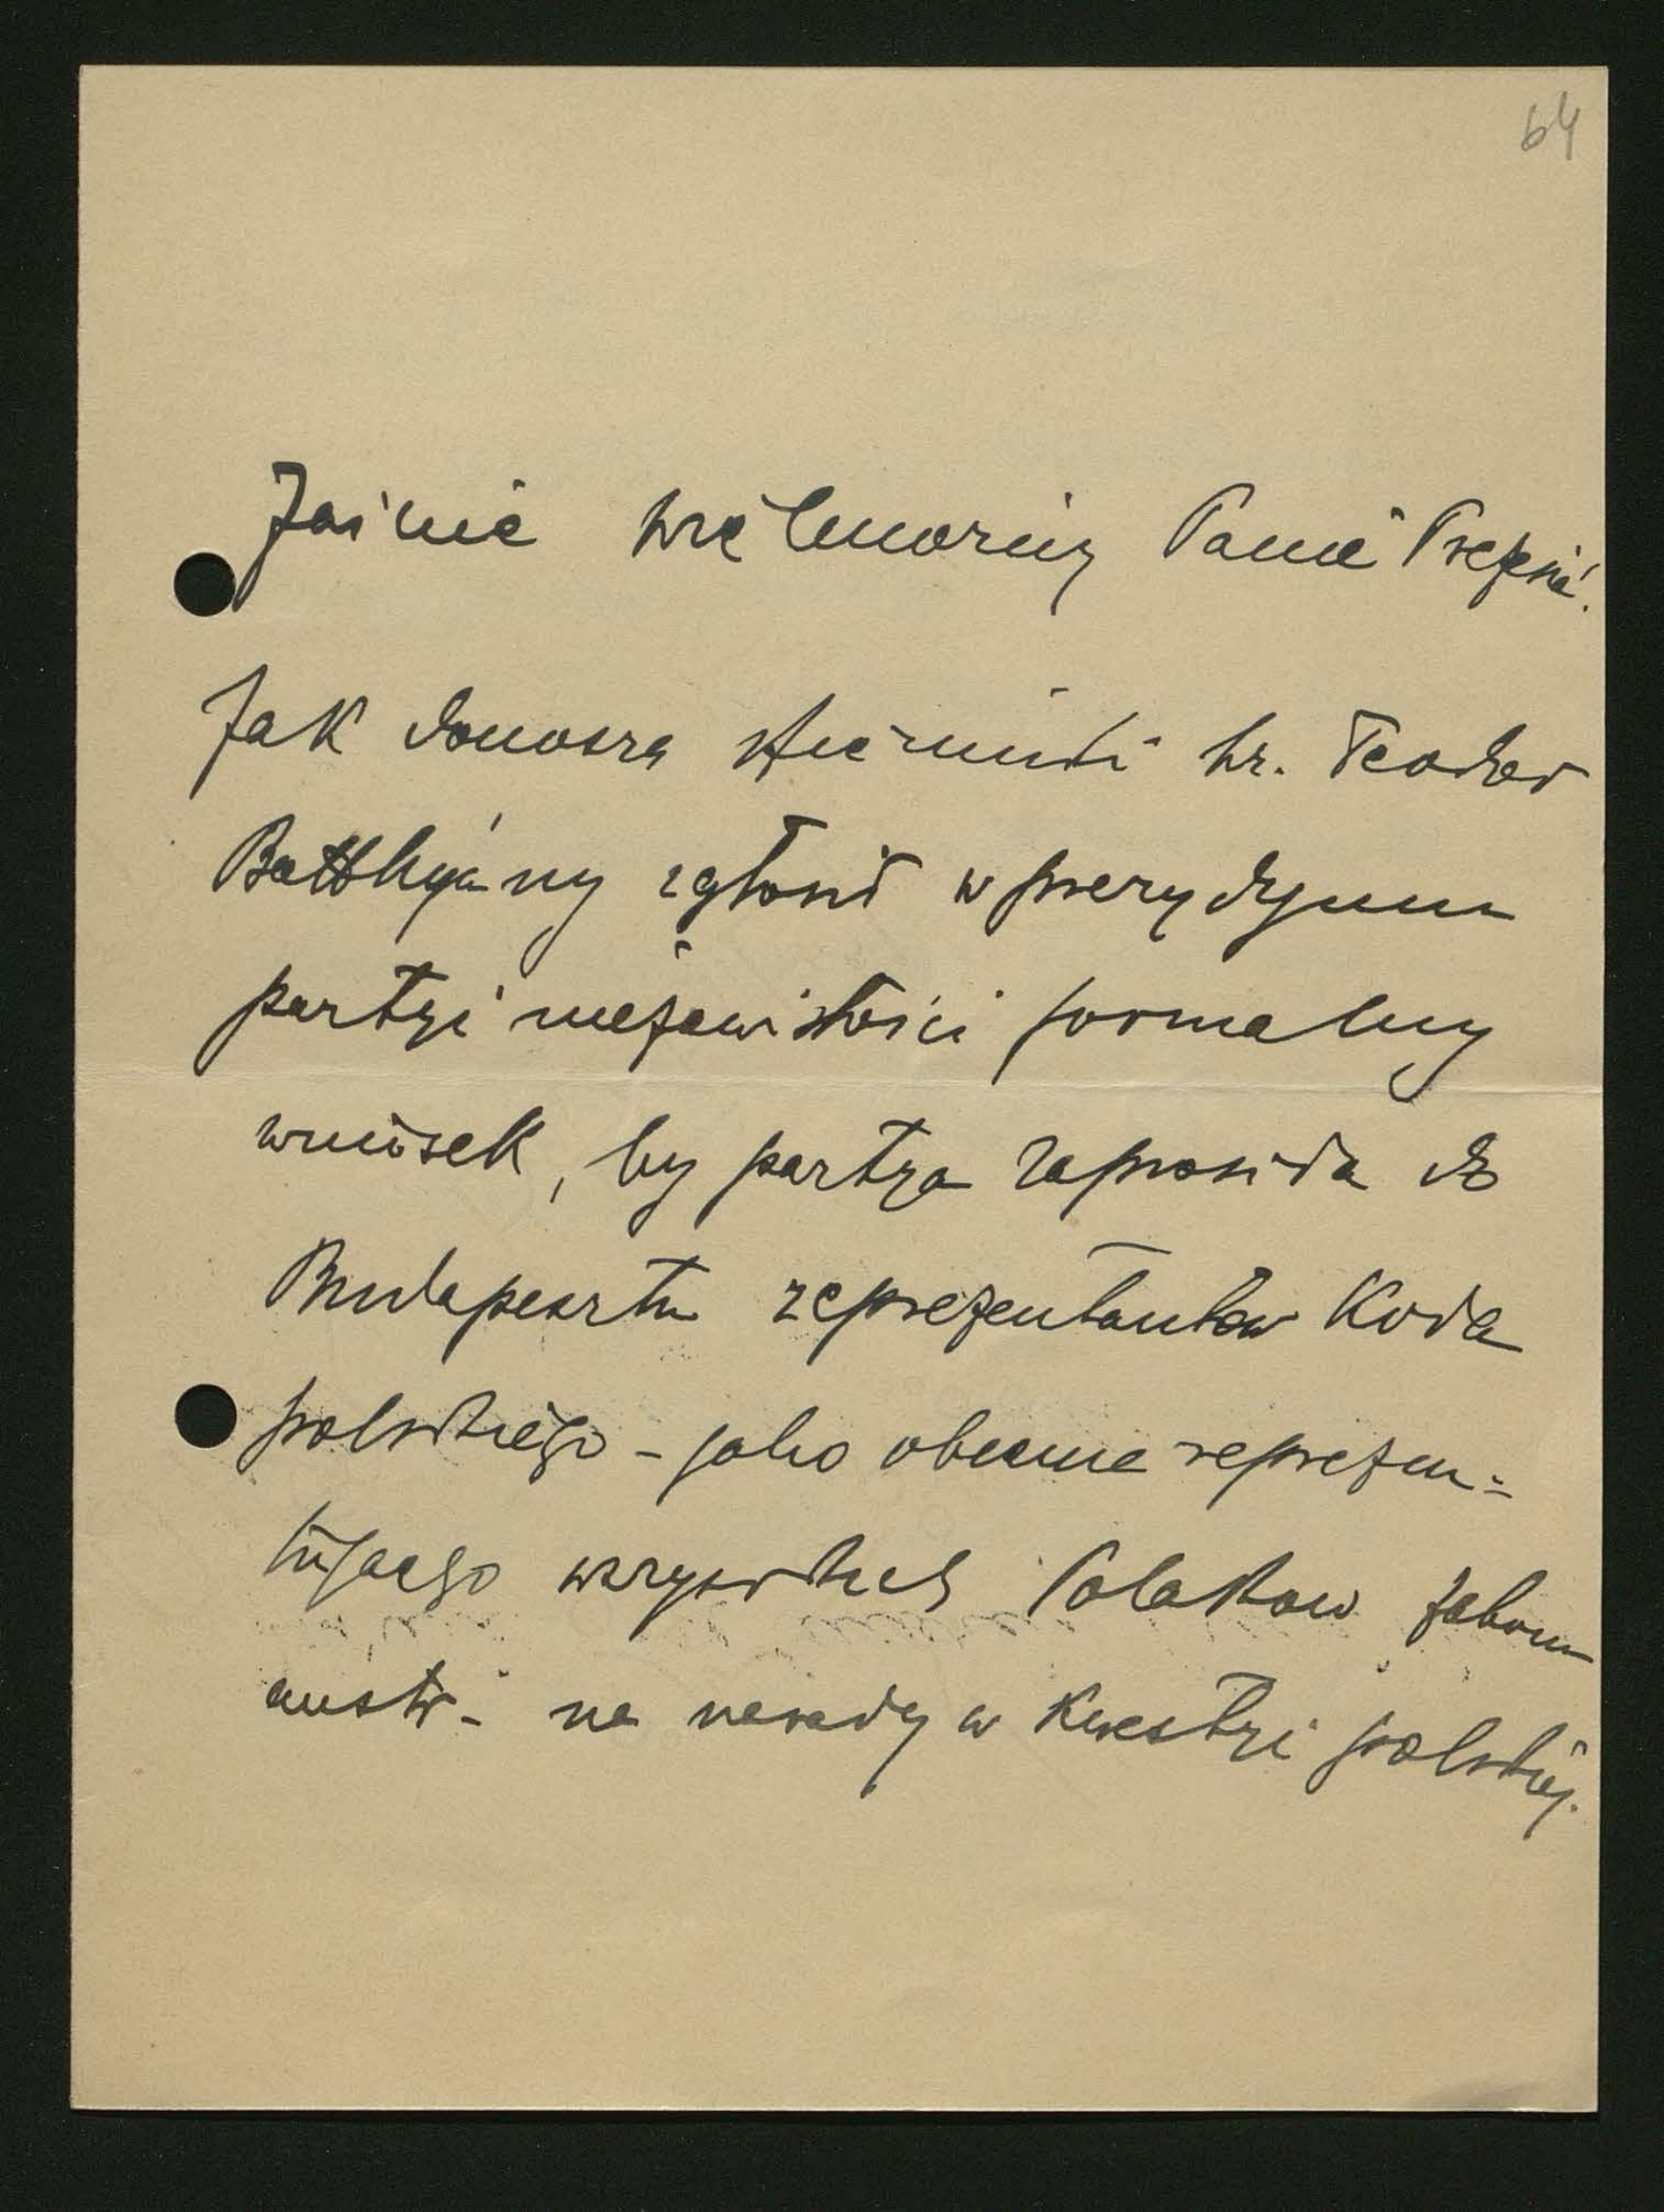 64
Jaśnie Wielmożny Panie Prezesie!
Jak donoszą dzienniki hr. Teodor
Batthyány zgłosił w prezydyum
partyi niezawisłości formalny
wniosek, by partya zaprosiła do
Budapesztu reprezentantów Koła
polskiego – jako obecnie reprezen=
tującego wszystkich Polaków zaboru
austr. – na narady w kwestyi polskiej.